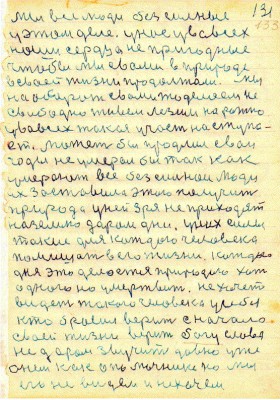 131
133
мы все люди без силные
у этом деле. у нас у всех
наши сердца не пригодные
чтобы мы сами в природе
своей жизни продолжали. мы
на оборот сами то делаем не
свободно живем
у всех такая участ наступа-
ет. может бы продлил свои
годы не умерал бы так как
умерают все без силнои люди
их заставила этого получит
природа у ней зря не приходят
на землю даром дни. у них силы
такие для каждого человека
помешат в его жизни. каждого
дня это делается природою хот
одного но умертвит. не хочет
видет такого человека у себя
кто бросил верит с начало
своей жизни верит богу слова
не даром звучит давно уже
о нем как о помочнике но мы
его не видем и не хочем